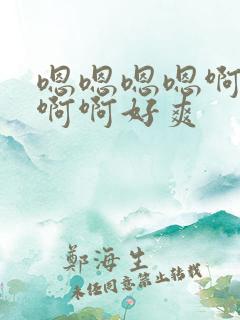 嗯嗯嗯嗯啊
啊啊好爽
鄭海生
未经同意禁止转载